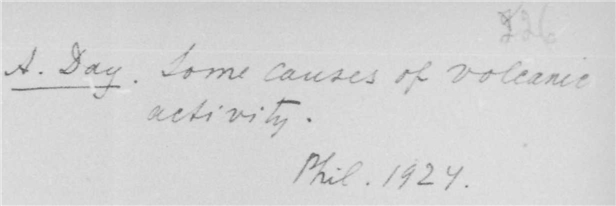 226
A. Day. Some causes of volcanic
activity.
Phil. 1924.